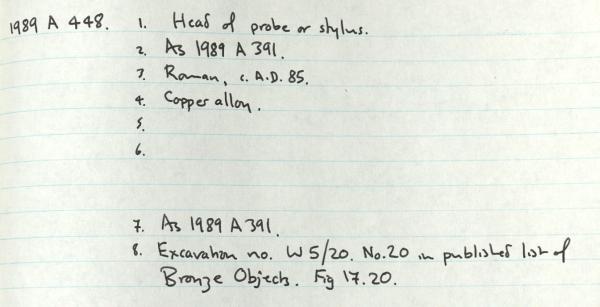 1989 A 448. 1. Head of probe or stylus.
2. As 1989 A 391.
3. Roman, c. A.D. 85.
4. Copper alloy.
5.
6.
7. As 1989 A 391.
8. Excavation no. W 5/20. No. 20 in published list of
Bronze Objects. Fig 17.20.